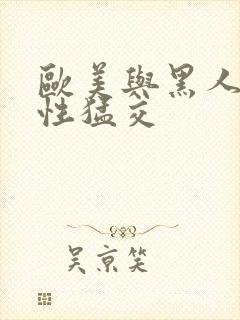 歐美與黑人
性猛交
吴京笑